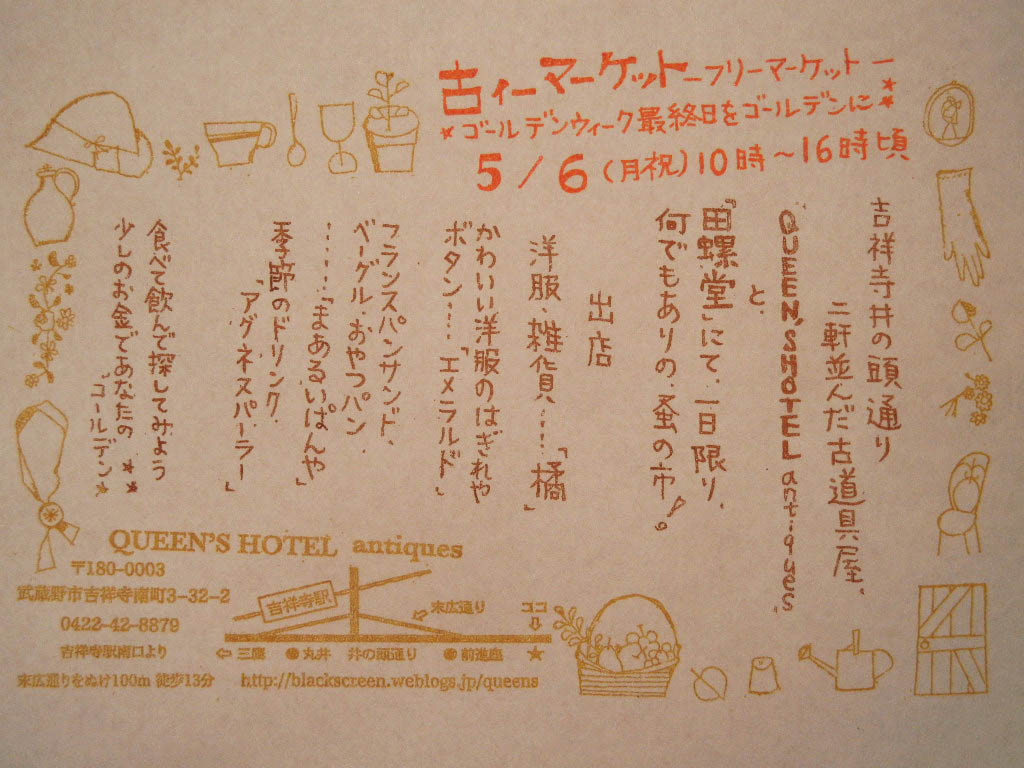 古ィーマーケット—フリーマーケット—
★ゴールデンウィーク最終日をゴールデンに★
5/6(月祝)10時~16時頃
吉祥寺井の頭通り
二軒並んだ古道具屋、
"QUEEN'SHOTEL antiques"
と、
「田螺堂」にて、一日限り、
何でもありの、蚤の市!。
出店
洋服、雑貨……「橘」
かわいい洋服のはぎれや
ボタン……「エメラルド」
フランスパンサンド、
ベーグル、おやつパン
……「まあるいぱんや」
季節のドリンク、
「アグネスパーラー」
食べて飲んで探してみよう
少しのお金であなたの★
"ゴールデン"★
QUEEN'S HOTEL antiques
〒180-0003
武蔵野市吉祥寺南町3-32-2
0422-42-8879
吉祥寺駅南口より
末広通りをぬけ100m 徒歩13分
吉祥寺駅
⇦末広通り
ココ
⇩
⇦三鷹 ●丸井 井の頭通り ●前進座 ★
http://blackscreen.weblogs.jp/queens